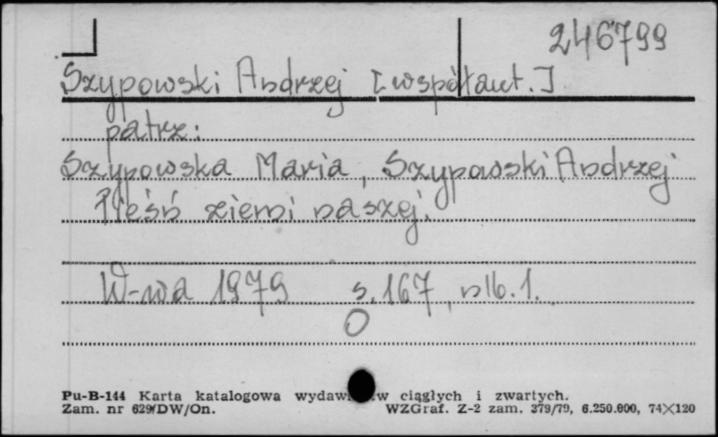 246799
Szypowski Andrzej [współaut.]
patrz:
Szypowska Maria, Szypowski Andrzej
Pieśń ziemi naszej.
W-wa 1979 s. 167, nlb. 1.
Pu-B-144 Karta katalogowa wydaw w ciągłych i zwartych.
Zam. nr 629/DW/On. WZGraf. Z-2 zam. 379/79, 6.250.000, 74×120